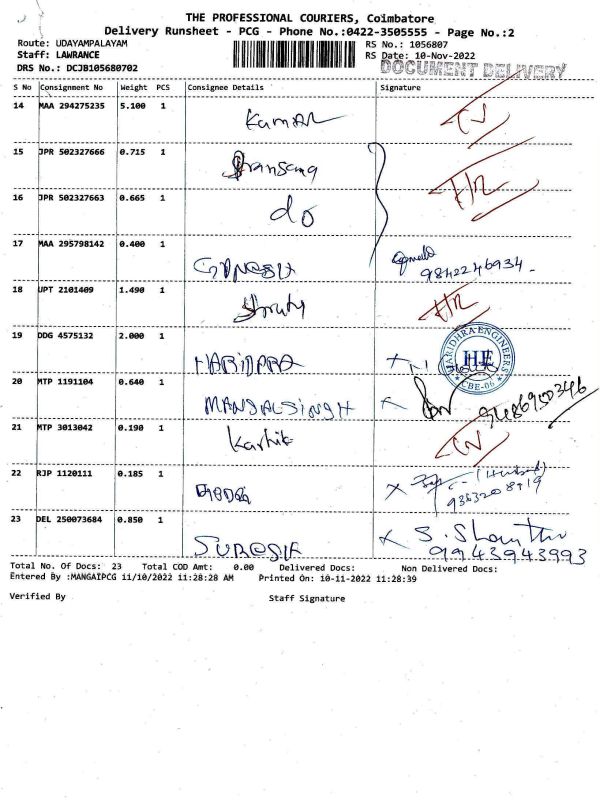 THE PROFESSIONAL COURIERS, Coimbatore
Delivery Runsheet - PCG - Phone No.:0422-3505555 - Page No.:2
Route: UDAYAMPALAYAM RS No.: 1056807
Staff: LAWRANCE RS Date: 10-Nov-2022
DRS No.: DCJB105680702 DOCUMENT DELIVERY
S No Consignment No Weight PCS Consignee Details Signature
14 MAA 294275235 5.100 1 Kumar
15 JPR 502327666 0.715 1
16 JPR 502327663 0.665 1 do
17 MAA 295798142 0.400 1 GANESH
9842246934
18 UPT 2101409 1.490 1
19 DDG 4575132 2.000 1 HARIDARA
HARIDHRA ENGINEERS
HE
CBE-06
20 MTP 1191104 0.640 1 MANGALSINGH
9486950346
21 MTP 3013042 0.190 1 Karthik
22 RJP 1120111 0.185 1
23 DEL 250073684 0.850 1 SURESH S. Shanthi
9943943993
Total No. Of Docs: 23 Total COD Amt: 0.00 Delivered Docs: Non Delivered Docs:
Entered By :MANGAIPCG 11/10/2022 11:28:28 AM Printed On: 10-11-2022 11:28:39
Verified By Staff Signature